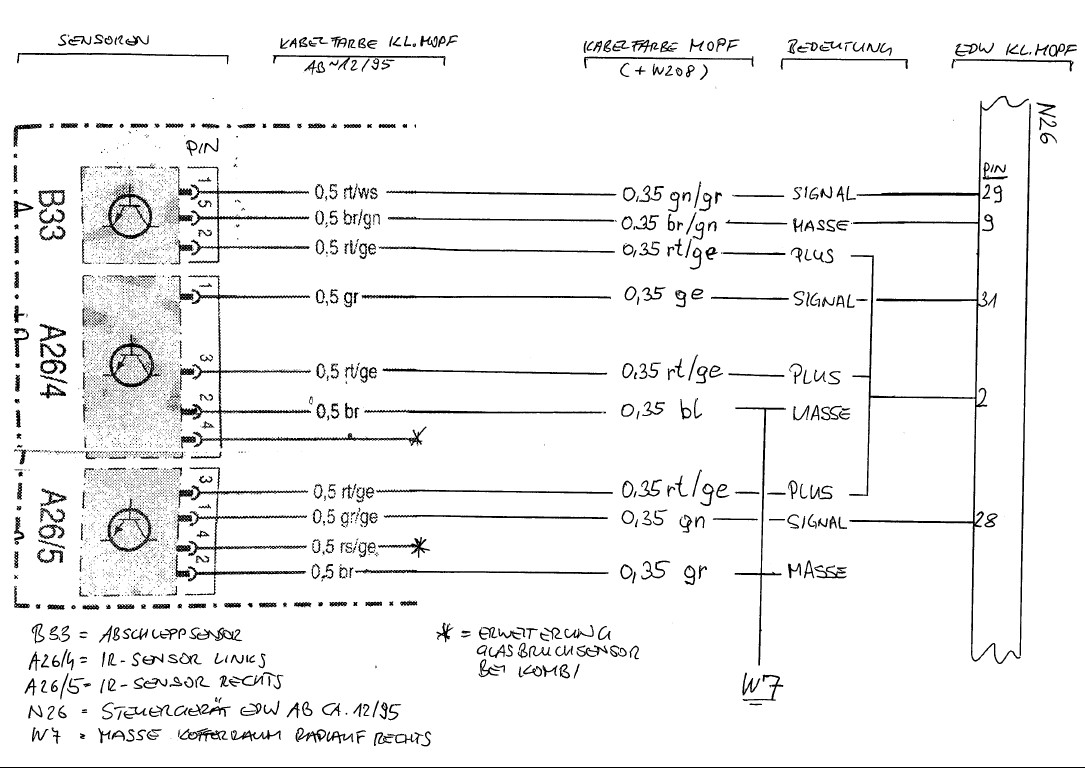 SENSOREN KABELFARBE KL.MOPF KABELFARBE MOPF BEDEUTUNG EDW KL.MOPF
AB ~12/95 (+W208)
N26
PIN
PIN
B33
1 0,5 rt/ws 0,35 gn/gr SIGNAL 29
5 0,5 br/gn 0.35 br/gn MASSE 9
2 0,5 rt/ge 0,35 rt/ge PLUS
A26/4
1 0,5 gr 0,35 ge SIGNAL 31
3 0,5 rt/ge 0,35 rt/ge PLUS
2
2 0,5 br 0,35 bl MASSE
4 *
A26/5
3 0,5 rt/ge 0,35 rt/ge PLUS
1 0,5 gr/ge 0,35 gn SIGNAL 28
4 0,5 rs/ge *
2 0,5 br 0,35 gr MASSE
W7
B33 = ABSCHLEPPSENSOR
A26/4 = IR-SENSOR LINKS
A26/5 = IR-SENSOR RECHTS
N26 = STEUERGERÄT EDW AB CA. 12/95
W7 = MASSE KOFFERRAUM RADLAUF RECHTS
* = ERWEITERUNG
GLASBRUCHSENSOR
BEI KOMBI